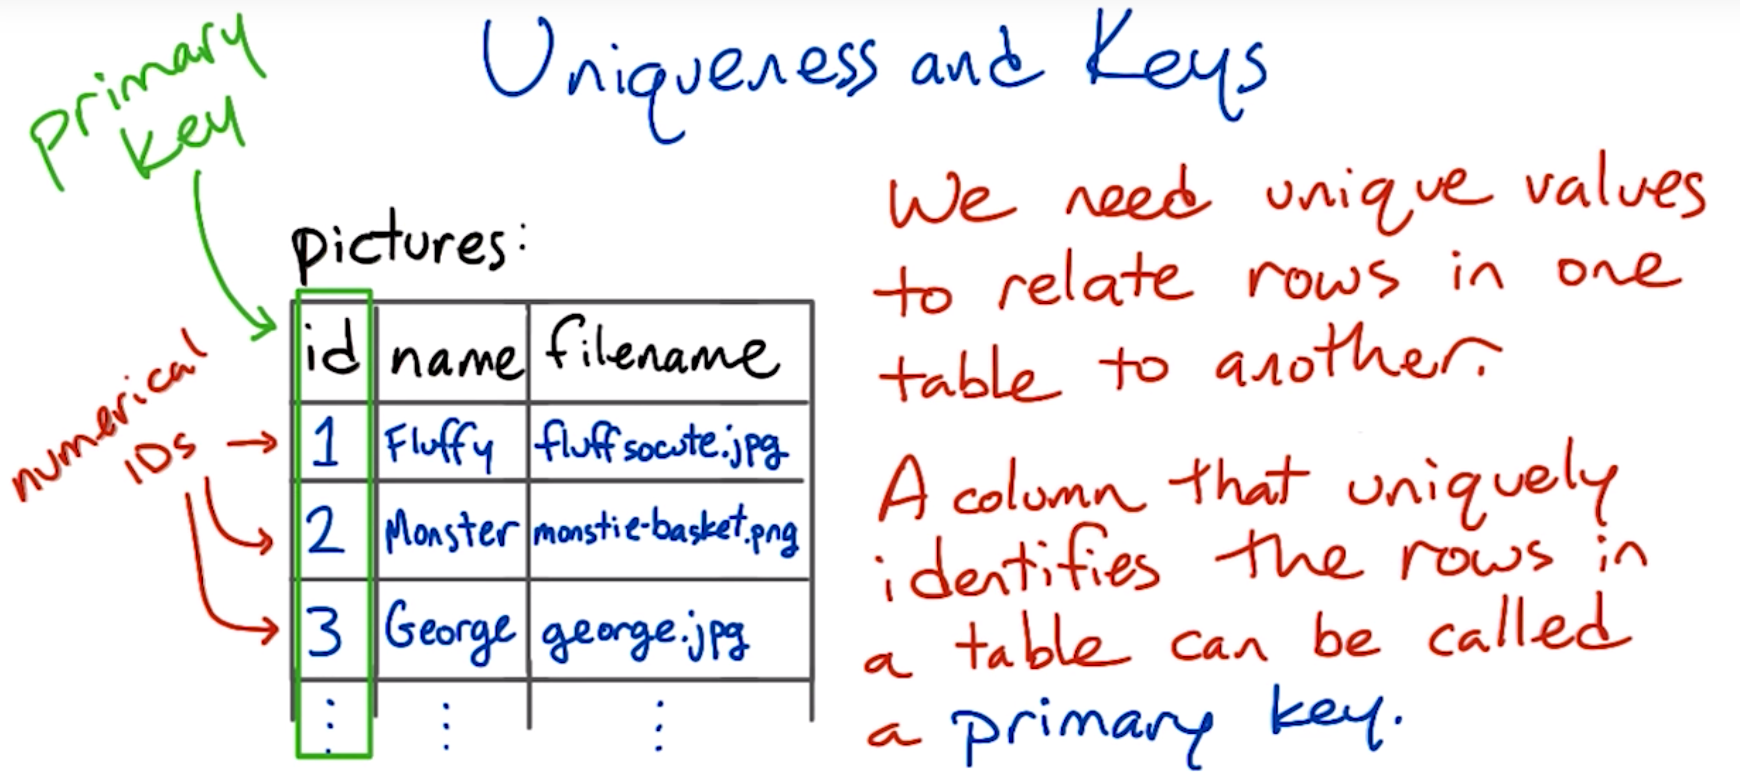 Uniqueness and Keys
primary
key
pictures:
id name filename
1 Fluffy fluffsocute.jpg
2 Monster monstie-basket.png
3 George george.jpg
numerical
IDs
We need unique values
to relate rows in one
table to another.
A column that uniquely
identifies the rows in
a table can be called
a primary key.